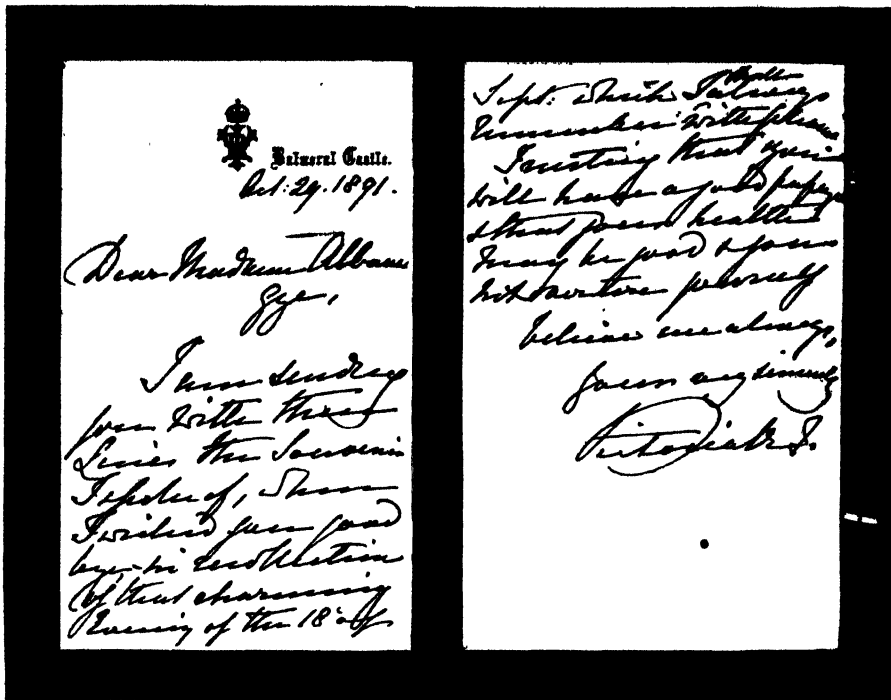 Balmoral Castle.
Oct: 29. 1891.
Dear Madame Albani
Gye,
I am sending
you with these
Lines the Souvenir
I spoke of, when
I wished you good
bye—in recollection
of that charming
Evening of the 18th of
Sept: which I shall always
remember with pleasure
Trusting that you
will have a good passage
& that your health
may be good & you
not overtire yourself
believe me always,
yours very sincerely
Victoria R. I.